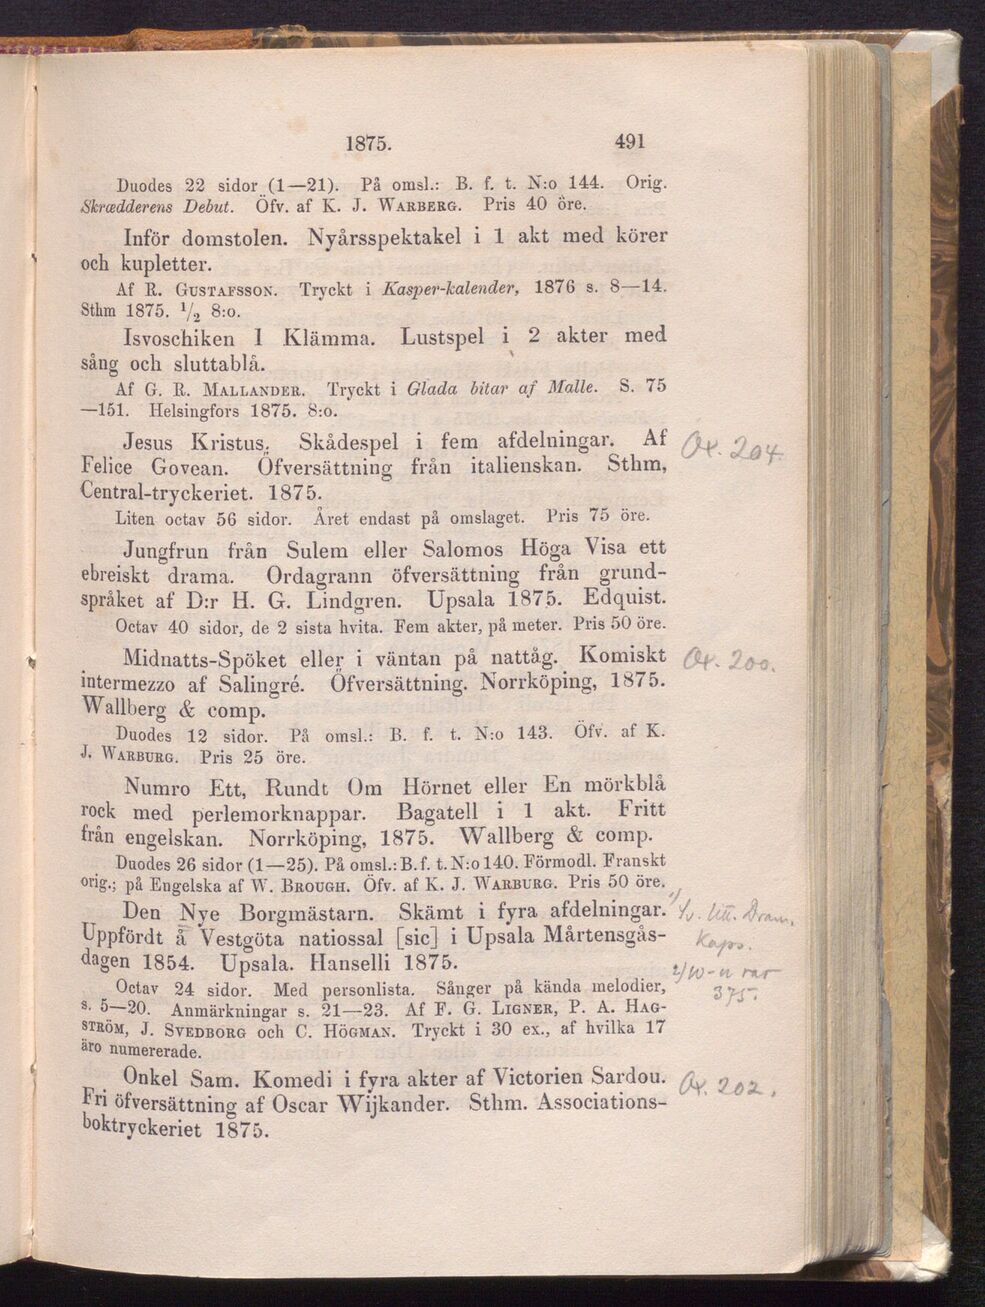 1875. 491
Duodes 22 sidor (1—21). På omsl.: B. f. t. N:o 144. Orig.
Skrædderens Debut. Öfv. af K. J. WARBERG. Pris 40 öre.
Inför domstolen. Nyårsspektakel i 1 akt med körer
och kupletter.
Af R. GUSTAFSSON. Tryckt i Kasper-kalender, 1876 s. 8—14.
Sthm 1875. 1/2 8:o.
Isvoschiken 1 Klämma. Lustspel i 2 akter med
sång och sluttablå.
Af G. R. MALLANDER. Tryckt i Glada bitar af Malle. S. 75
—151. Helsingfors 1875. 8:o.
Jesus Kristus. Skådespel i fem afdelningar. Af
Felice Govean. Öfversättning från italienskan. Sthm,
Central-tryckeriet. 1875.
Ox. 204.
Liten octav 56 sidor. Året endast på omslaget. Pris 75 öre.
Jungfrun från Sulem eller Salomos Höga Visa ett
ebreiskt drama. Ordagrann öfversättning från grund-
språket af D:r H. G. Lindgren. Upsala 1875. Edquist.
Octav 40 sidor, de 2 sista hvita. Fem akter, på meter. Pris 50 öre.
Midnatts-Spöket eller i väntan på nattåg. Komiskt
intermezzo af Salingré. Öfversättning. Norrköping, 1875.
Wallberg & comp.
Ox. 200.
Duodes 12 sidor. På omsl.: B. f. t. N:o 143. Öfv. af K.
J. WARBURG. Pris 25 öre.
Numro Ett, Rundt Om Hörnet eller En mörkblå
rock med perlemorknappar. Bagatell i 1 akt. Fritt
från engelskan. Norrköping, 1875. Wallberg & comp.
Duodes 26 sidor (1—25). På omsl.: B. f. t. N:o 140. Förmodl. Franskt
orig.; på Engelska af W. BROUGH. Öfv. af K. J. WARBURG. Pris 50 öre.
Den Nye Borgmästarn. Skämt i fyra afdelningar.
Uppfördt å Vestgöta natiossal [sic] i Upsala Mårtensgås-
dagen 1854. Upsala. Hanselli 1875.
litt. Dram.
Kaps.
375.
Octav 24 sidor. Med personlista. Sånger på kända melodier,
s. 5—20. Anmärkningar s. 21—23. Af F. G. LIGNER, P. A. HAG-
STRÖM, J. SVEDBORG och C. HÖGMAN. Tryckt i 30 ex., af hvilka 17
äro numererade.
Onkel Sam. Komedi i fyra akter af Victorien Sardou.
Fri öfversättning af Oscar Wijkander. Sthm. Associations-
boktryckeriet 1875.
Ox. 202.